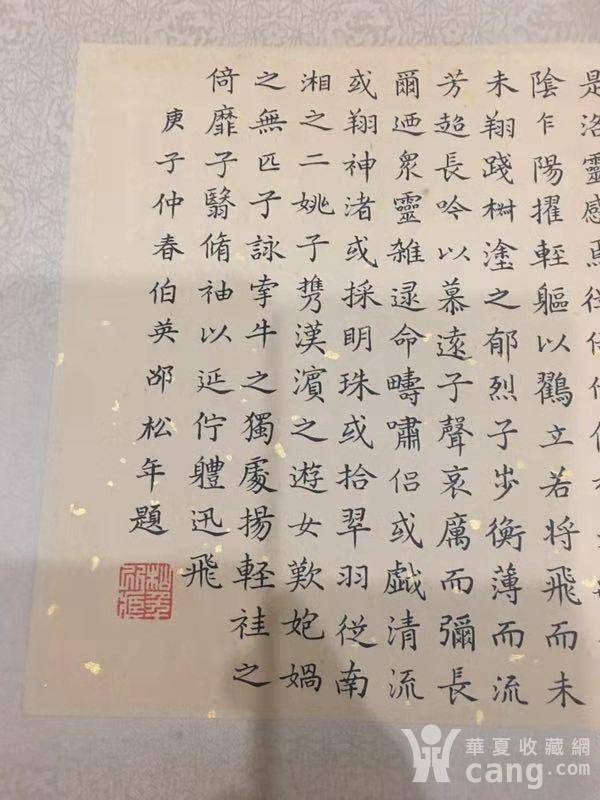 是洛靈感焉徙
陰乍陽擢輕軀以鶴立若將飛而未
未翔踐椒塗之郁烈子步衡薄而流
芳超長吟以慕遠子聲哀厲而彌長
爾迺眾靈雜遝命疇嘯侶或戯清流
或翔神渚或採明珠或拾翠羽從南
湘之二姚子携漢濱之遊女歎匏媧
之無匹子詠牽牛之獨處揚軽袿之
倚靡子翳脩袖以延佇體迅飛
庚子仲春伯英邵松年題
華夏收藏網
cang.com